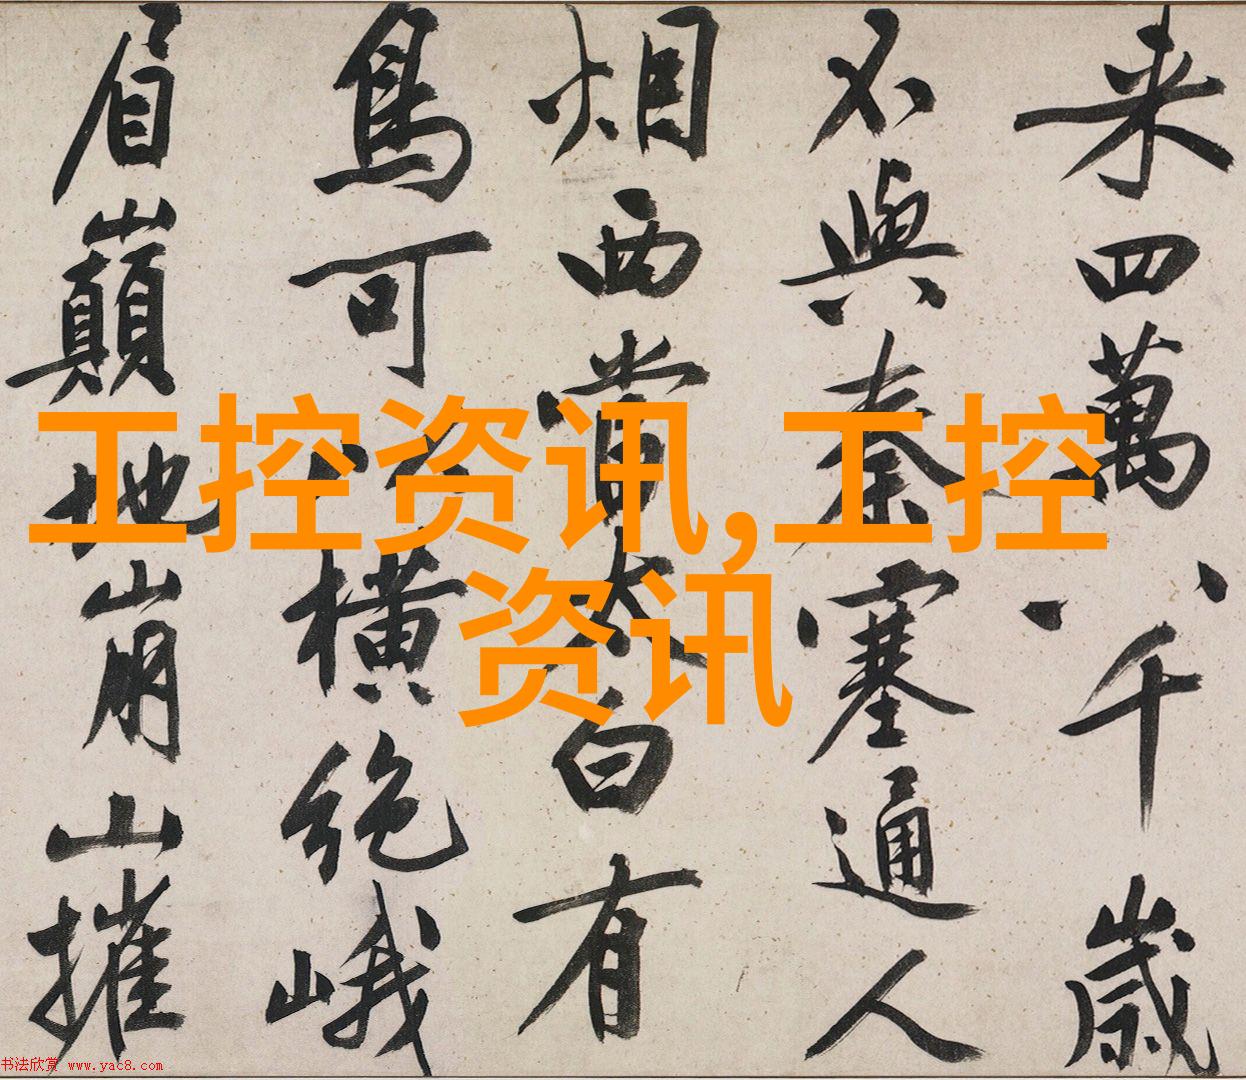 来四萬八千歲
不與秦塞通人
烟西當太白有
鳥可以橫絶峨
眉巔地崩山摧
工控资讯,工控
资讯
书法欣赏 www.yac8.com